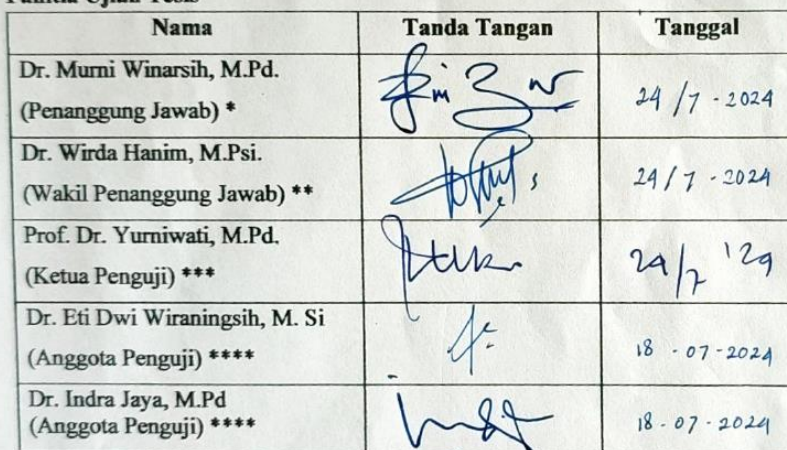 Panitia Ujian Tesis
Nama Tanda Tangan Tanggal
Dr. Murni Winarsih, M.Pd.
(Penanggung Jawab) * 24/7-2024
Dr. Wirda Hanim, M.Psi.
(Wakil Penanggung Jawab) ** 24/7-2024
Prof. Dr. Yurniwati, M.Pd.
(Ketua Penguji) *** 24/7 '24
Dr. Eti Dwi Wiraningsih, M. Si
(Anggota Penguji) **** 18-07-2024
Dr. Indra Jaya, M.Pd
(Anggota Penguji) **** 18-07-2024